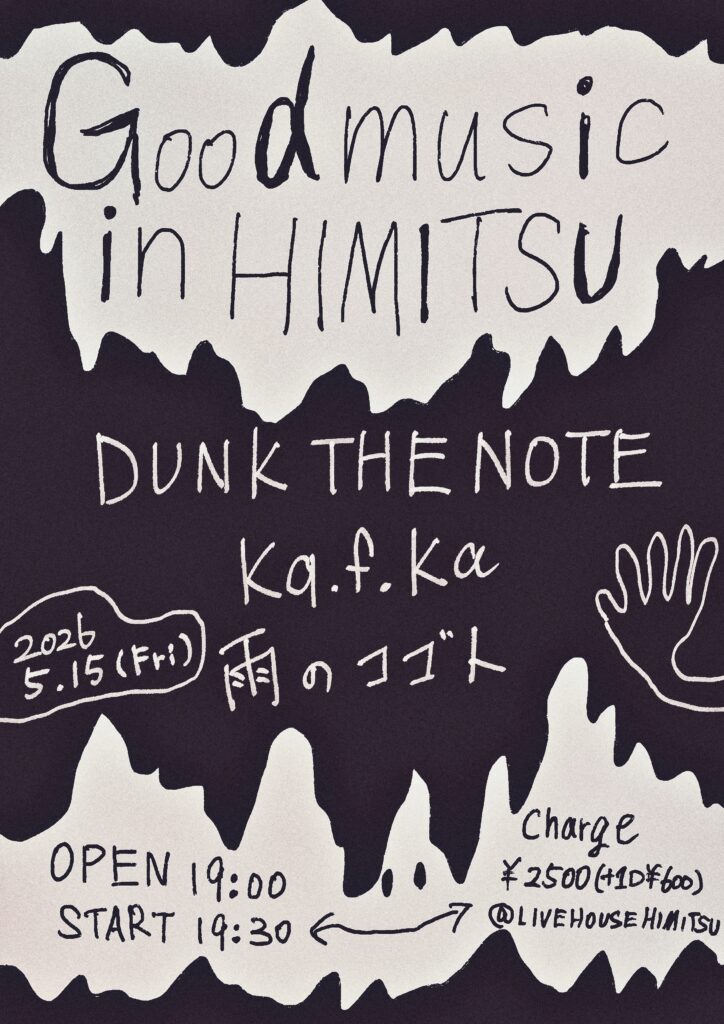 Good music
in HIMITSU
DUNK THE NOTE
Ka.f.ka
雨のココ゛ト
2026
5.15(Fri)
OPEN 19:00
START 19:30
Charge
¥2500(+1D¥600)
@LIVEHOUSEHIMITSU